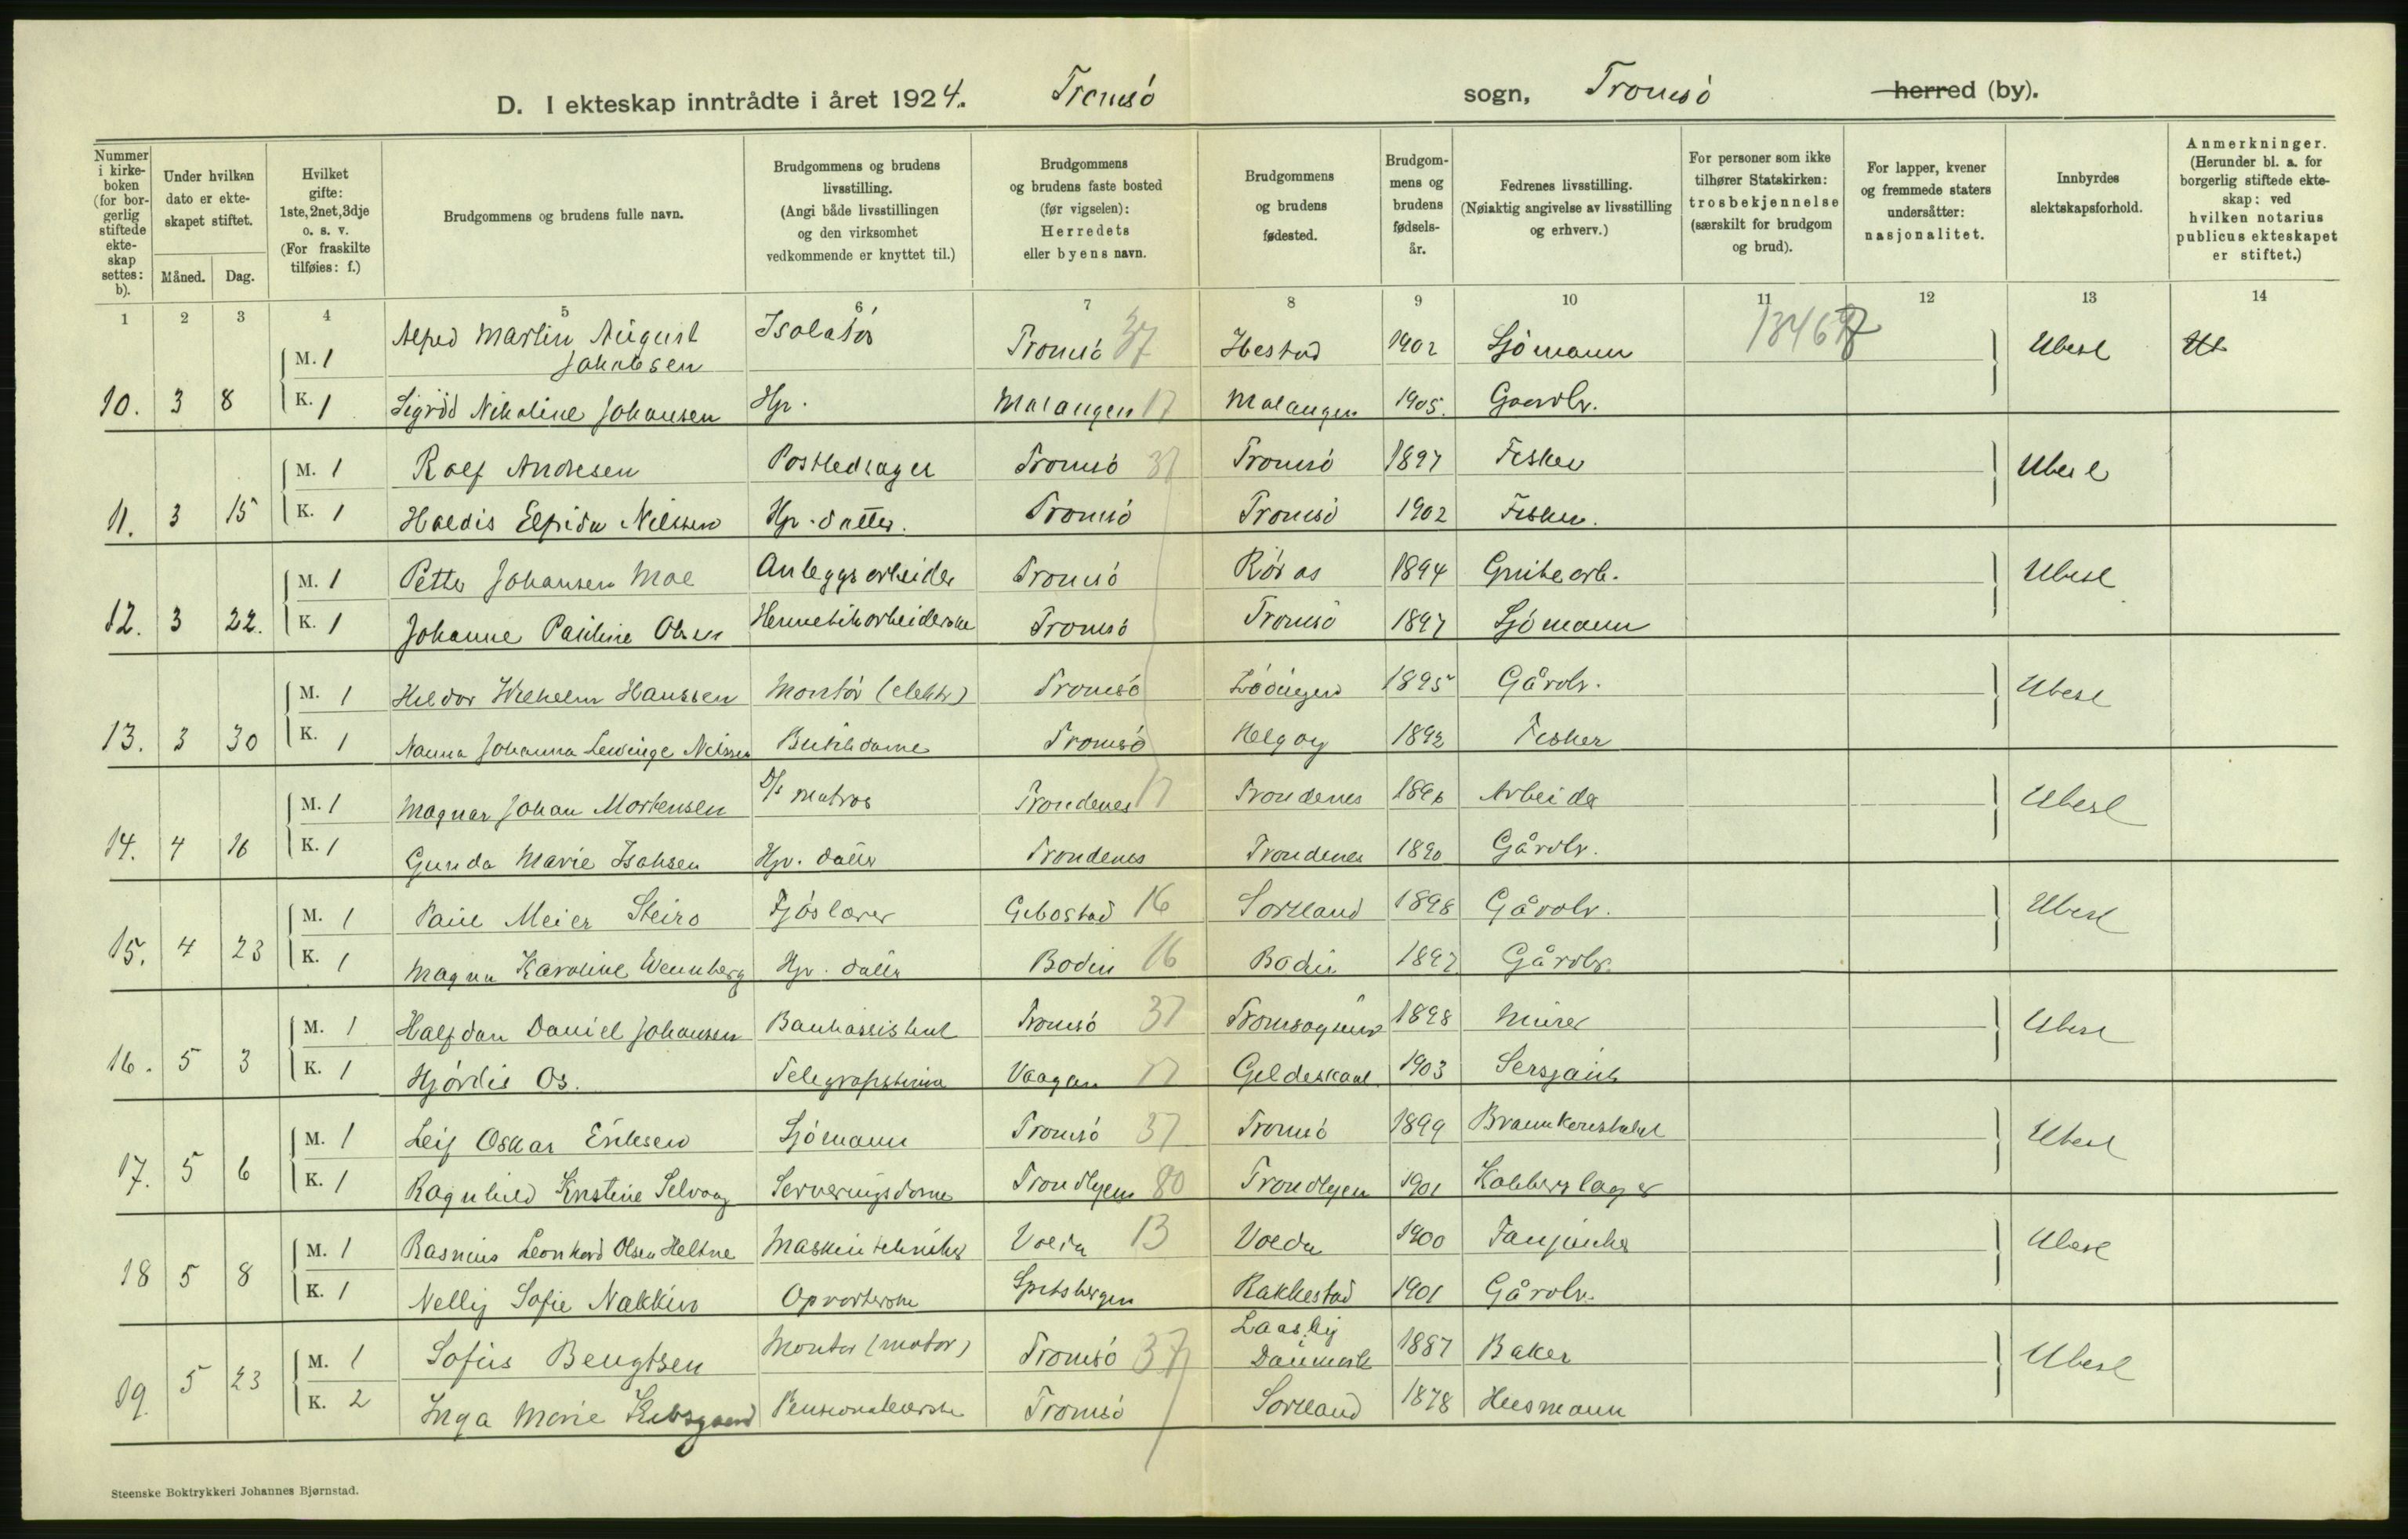 D. I ekteskap inntrådte i året 1924. Tromsö sogn, Tromsö herred (by).
Nummer i kirkeboken (for borgerlig stiftede ekteskap settes: b).
Under hvilken dato er ekteskapet stiftet.
Måned. Dag.
Hvilket gifte: 1ste, 2net, 3dje o. s. v. (For fraskilte tilføies: f.)
Brudgommens og brudens fulle navn.
Brudgommens og brudens livsstilling. (Angi både livsstillingen og den virksomhet vedkommende er knyttet til.)
Brudgommens og brudens faste bosted (før vigselen): Herredets eller byens navn.
Brudgommens og brudens fødested.
Brudgommens og brudens fødselsår.
Fedrenes livsstilling. (Nøiaktig angivelse av livsstilling og erhverv.)
For personer som ikke tilhører Statskirken: trosbekjennelse (særskilt for brudgom og brud).
For lapper, kvener og fremmede staters undersåtter: nasjonalitet.
Innbyrdes slektskapsforhold.
Anmerkninger. (Herunder bl. a. for borgerlig stiftede ekteskap: ved hvilken notarius publicus ekteskapet er stiftet.)
1 2 3 4 5 6 7 8 9 10 11 12 13 14
M. 1 Alfred Martin August Jakobsen Isolatör Tromsö 37 Ibestad 1902 Sjömann Ubesl
10. 3 8 K. 1 Sigrid Nikoline Johansen Hp. Malangen 17 Malangen 1905. Gaardbr.
M. 1 Rolf Andresen Postbedrager Tromsö 37 Tromsö 1897 Fisker Ubesl
11. 3 15 K. 1 Haldis Elfrida Nilssen Hp. datter. Tromsö Tromsö 1902 Fisker.
M. 1 Petter Johansen Moe Anleggsarbeider Tromsö Röros 1894 Grubearb. Ubesl
12. 3 22. K. 1 Johanne Pauline Olsen Hermetikarbeiderske Tromsö Tromsö 1897 Sjömann
M. 1 Hildor Wilhelm Hanssen Montör (elektr) Tromsö Lödingen 1895 Gårdbr. Ubesl
13. 3 30 K. 1 Nanna Johanna Nilssen Butikdame Tromsö Helgøy 1892 Fisker
M. 1 Magnar Johan Mortensen D/s matros Trondenes 17 Trondenes 1896 Arbeider Ubesl
14. 4 16 K. 1 Gunda Marie Isaksen Hp. datter Trondenes Trondenes 1890 Gårdbr.
M. 1 Paul Meier Steiro Fjöslærer Gibostad 16 Sortland 1898 Gårdbr. Ubesl
15. 4 23 K. 1 Magna Karoline Wennberg Hp. datter Bodin 16 Bodin 1897 Gårdbr.
M. 1 Halfdan Daniel Johansen Bankassistent Tromsö 37 Tromsøysund 1898 Murer Ubesl
16. 5 3 K. 1 Hjördis Os. Telegrafistinne Vaagan 17 Gildeskaal. 1903 Sersjant
M. 1 Leif Oskar Eriksen Sjömann Tromsö 37 Tromsö 1899 Brannkonstabel Ubesl
17. 5 6 K. 1 Ragnhild Kristine Selvaag Serveringsdame Trondhjem 80 Trondhjem 1901 Kobberslager
M. 1 Rasmus Leonhard Olsen Heltne Maskintekniker Volda 13 Volda 1900 Ubesl
18 5 8 K. 1 Nellij Sofie Nakkim Opvarterske Spitsbergen Rakkestad 1901 Gårdbr.
M. 1 Sofus Bengtsen Montör (motor) Tromsö 37 Laasby Danmark 1887 Baker Ubesl
19. 5 23 K. 2 Inga Marie Tromsö Sortland 1878 Husmann
Steenske Boktrykkeri Johannes Bjørnstad.